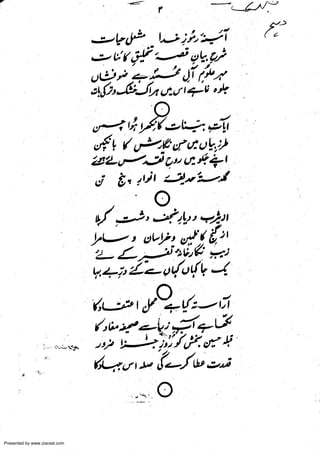 ۳
آئینۂ رموزِ خدا مشکل حیات
شرح بیان قصۂ تخلیق کائنات
مہر علوم آل محمدؐ ہے ضو فشاں
جلوہ نما ہے اس میں ہر اک خشک و تر کی بات
آیات بینات کا نکھرا ہوا چمن
طرز بیاں میں حسن نگارش کا بانکپن
اپنے جلو میں روح تقدس لئے ہوئے
گلدستۂ حدیقۂ انوار پنج تن
از یثرب و دیار نجف دشت کربلا
از کاظمین و خراسان و سامرا
زیب نگار خانۂ تفسیر کے لئے
یک جا کہاں کہاں سے کئے در بے بہا
آراستہ کیا ہے محل اعتقاد کا
لکھا ہے آب زر سے صحیفہ مفاد کا
قبلہ حسین بخش کو روز جزا ضرور
قدرت عطا کرے گی صلہ اس جہاد کا
Presented by www.ziaraat.com